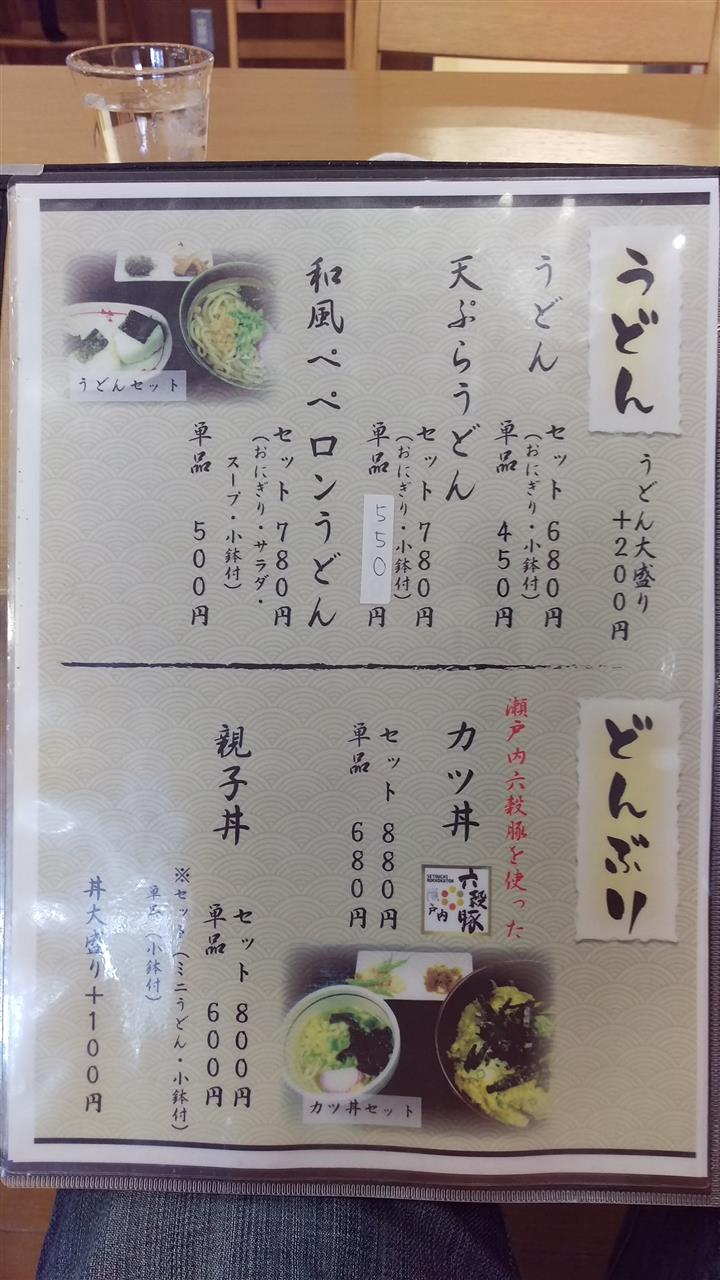 うどん
うどん大盛り
+200円
うどん
セット 680円
(おにぎり・小鉢付)
単品 450円
天ぷらうどん
セット 780円
(おにぎり・小鉢付)
単品 550円
和風ペペロンうどん
セット 780円
(おにぎり・サラダ・
スープ・小鉢付)
単品 500円
うどんセット
どんぶり
瀬戸内六穀豚を使った
カツ丼
SETOUCHI
ROKKOKUTON
瀬戸内
六穀豚
セット 880円
単品 680円
カツ丼セット
親子丼
セット 800円
単品 600円
※セット(ミニうどん・小鉢付)
単品(小鉢付)
丼大盛り+100円